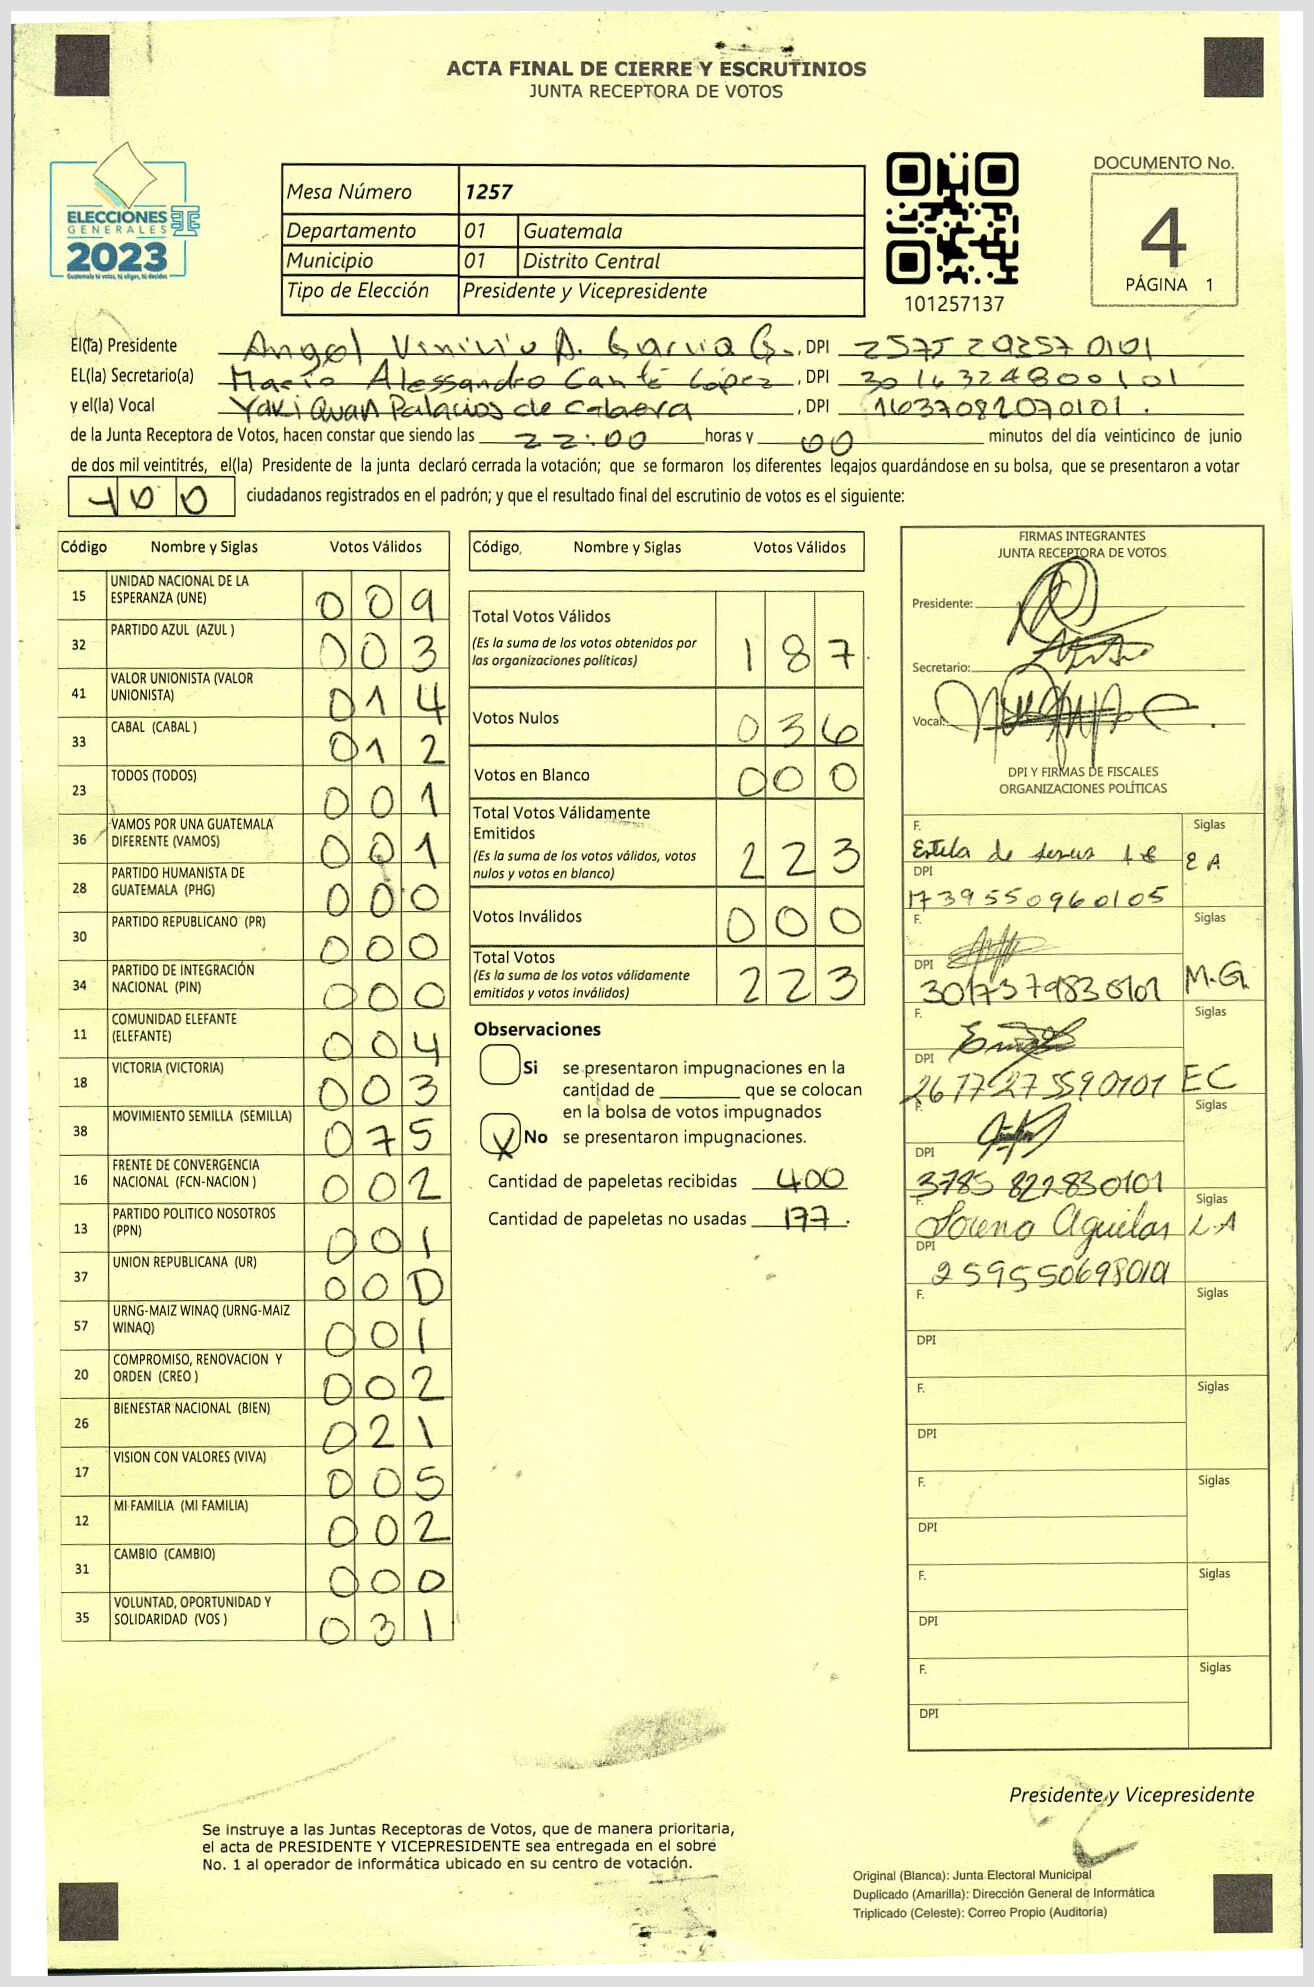 ACTA FINAL DE CIERRE Y ESCRUTINIOS
JUNTA RECEPTORA DE VOTOS
ELECCIONES
GENERALES
2023
Guatemala tú votas, tú eliges, tú decides
Mesa Número 1257
Departamento 01 Guatemala
Municipio 01 Distrito Central
Tipo de Elección Presidente y Vicepresidente
101257137
DOCUMENTO No.
4
PÁGINA 1
El(la) Presidente Angel Vinicio A. Garcia G., DPI 2575 20257 0101
EL(la) Secretario(a) Mario Alessandro Canté López, DPI 3016324800101
y el(la) Vocal Yaki Quan Palacios de Cabrera, DPI 1637082070101.
de la Junta Receptora de Votos, hacen constar que siendo las 22:00 horas y 00 minutos del día veinticinco de junio
de dos mil veintitrés, el(la) Presidente de la junta declaró cerrada la votación; que se formaron los diferentes legajos guardándose en su bolsa, que se presentaron a votar
400 ciudadanos registrados en el padrón; y que el resultado final del escrutinio de votos es el siguiente:
Código Nombre y Siglas Votos Válidos
15 UNIDAD NACIONAL DE LA ESPERANZA (UNE) 009
32 PARTIDO AZUL (AZUL ) 003
41 VALOR UNIONISTA (VALOR UNIONISTA) 014
33 CABAL (CABAL ) 012
23 TODOS (TODOS) 001
36 VAMOS POR UNA GUATEMALA DIFERENTE (VAMOS) 001
28 PARTIDO HUMANISTA DE GUATEMALA (PHG) 000
30 PARTIDO REPUBLICANO (PR) 000
34 PARTIDO DE INTEGRACIÓN NACIONAL (PIN) 000
11 COMUNIDAD ELEFANTE (ELEFANTE) 004
18 VICTORIA (VICTORIA) 003
38 MOVIMIENTO SEMILLA (SEMILLA) 075
16 FRENTE DE CONVERGENCIA NACIONAL (FCN-NACION ) 002
13 PARTIDO POLITICO NOSOTROS (PPN) 001
37 UNION REPUBLICANA (UR) 000
57 URNG-MAIZ WINAQ (URNG-MAIZ WINAQ) 001
20 COMPROMISO, RENOVACION Y ORDEN (CREO ) 002
26 BIENESTAR NACIONAL (BIEN) 021
17 VISION CON VALORES (VIVA) 005
12 MI FAMILIA (MI FAMILIA) 002
31 CAMBIO (CAMBIO) 000
35 VOLUNTAD, OPORTUNIDAD Y SOLIDARIDAD (VOS ) 031
Código, Nombre y Siglas Votos Válidos
Total Votos Válidos 187
(Es la suma de los votos obtenidos por
las organizaciones políticas)
Votos Nulos 036
Votos en Blanco 000
Total Votos Válidamente
Emitidos 223
(Es la suma de los votos válidos, votos
nulos y votos en blanco)
Votos Inválidos 000
Total Votos 223
(Es la suma de los votos válidamente
emitidos y votos inválidos)
Observaciones
Si se presentaron impugnaciones en la
cantidad de ______ que se colocan
en la bolsa de votos impugnados
X No se presentaron impugnaciones.
Cantidad de papeletas recibidas 400
Cantidad de papeletas no usadas 177.
FIRMAS INTEGRANTES
JUNTA RECEPTORA DE VOTOS
Presidente:
Secretario:
Vocal:
DPI Y FIRMAS DE FISCALES
ORGANIZACIONES POLÍTICAS
F. Estela de Siglas EA
DPI 1739550960105
F. Siglas M.G.
DPI 3017379830101
F. Siglas EC
DPI 2617727559 0101
F. Siglas
DPI 3785 822830101
F. Lorena Aguilar Siglas L.A
DPI
F. Siglas
DPI
F. Siglas
DPI
F. Siglas
DPI
F. Siglas
DPI
F. Siglas
DPI
Presidente y Vicepresidente
Se instruye a las Juntas Receptoras de Votos, que de manera prioritaria,
el acta de PRESIDENTE Y VICEPRESIDENTE sea entregada en el sobre
No. 1 al operador de informática ubicado en su centro de votación.
Original (Blanca): Junta Electoral Municipal
Duplicado (Amarilla): Dirección General de Informática
Triplicado (Celeste): Correo Propio (Auditoría)